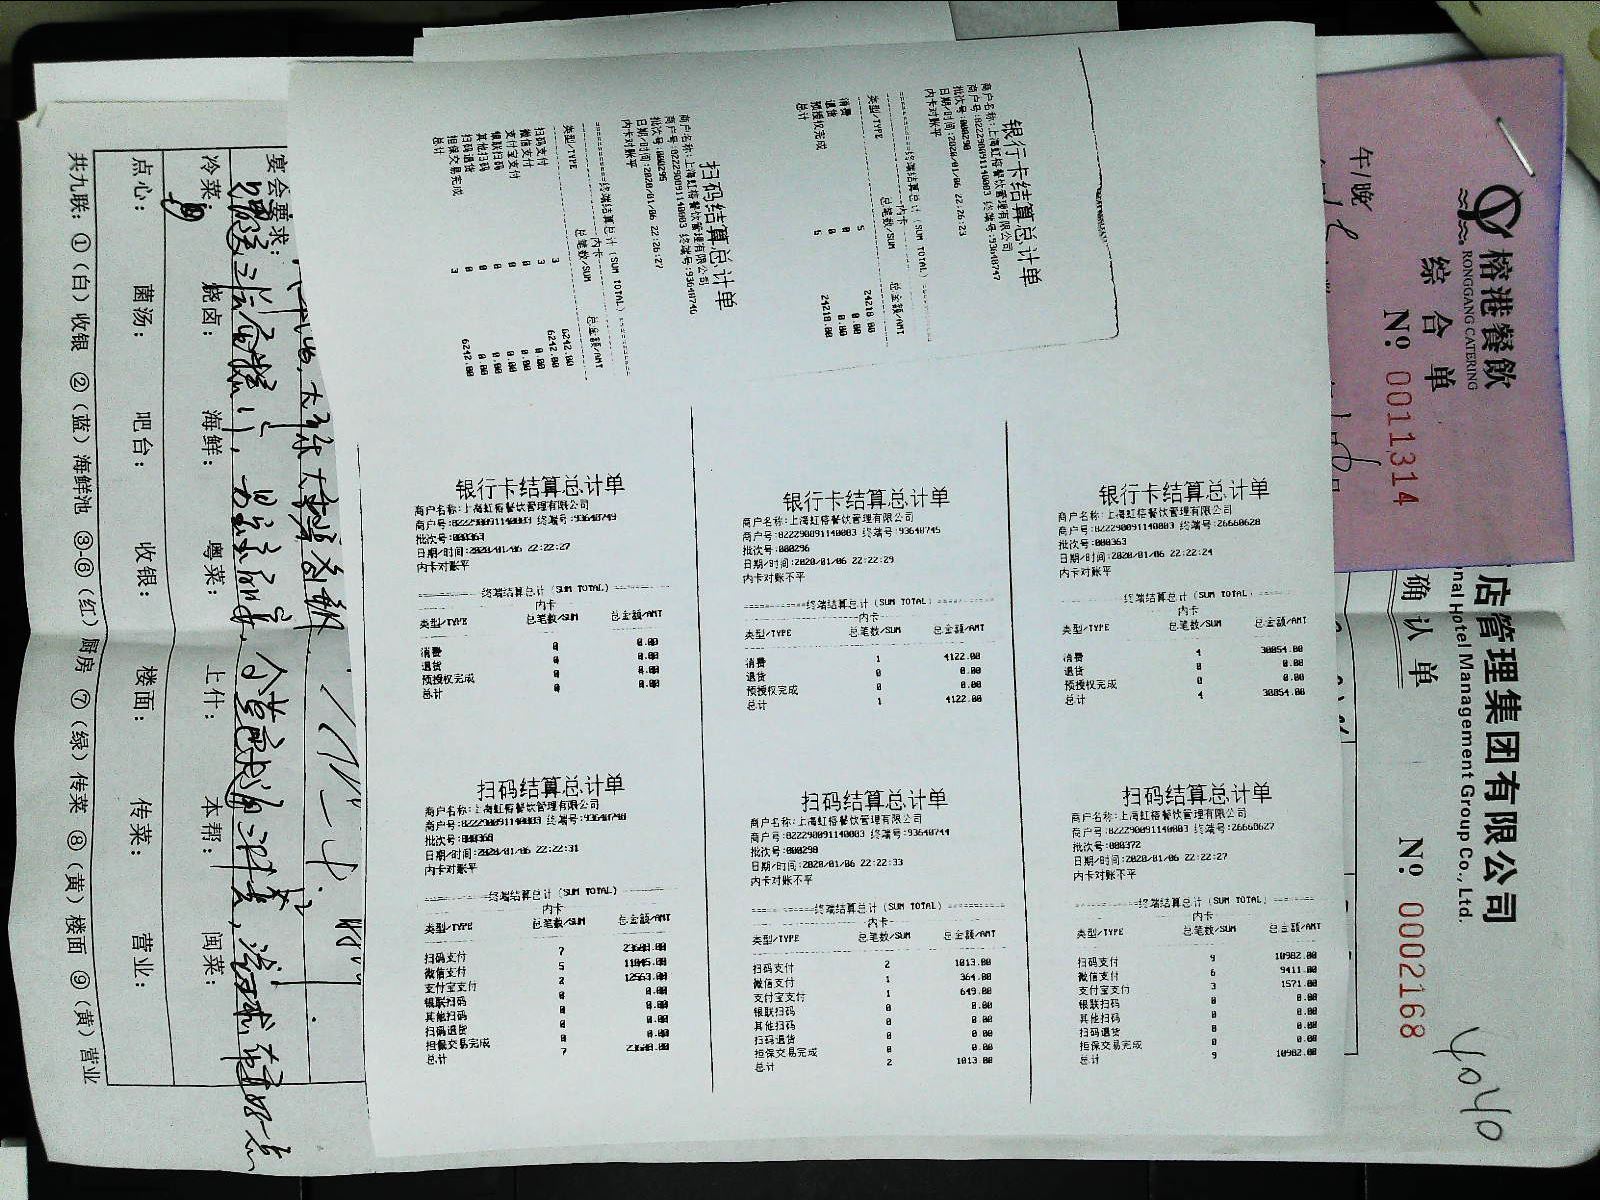 银行卡结算总计单
商户名称:上海虹榕餐饮管理有限公司
商户号:822290091140003 终端号:93640747
批次号:000290
日期/时间:2020/01/06 22:26:23
内卡对账平
终端结算总计 (SUM TOTAL)
内卡
类型/TYPE 总笔数/SUM 总金额/AMT
消费 5 24218.00
退货 0 0.00
预授权完成 0 0.00
总计 5 24218.00
扫码结算总计单
商户名称:上海虹榕餐饮管理有限公司
商户号:822290091140003 终端号:93640746
批次号:000295
日期/时间:2020/01/06 22:26:27
内卡对账平
终端结算总计 (SUM TOTAL)
内卡
类型/TYPE 总笔数/SUM 总金额/AMT
扫码支付 3 6242.00
微信支付 3 6242.00
支付宝支付 0 0.00
银联扫码 0 0.00
其他扫码 0 0.00
扫码退货 0 0.00
担保交易完成 0 0.00
总计 3 6242.00
银行卡结算总计单
商户名称:上海虹榕餐饮管理有限公司
商户号:822290091140003 终端号:93640749
批次号:000363
日期/时间:2020/01/06 22:22:27
内卡对账平
终端结算总计 (SUM TOTAL)
内卡
类型/TYPE 总笔数/SUM 总金额/AMT
消费 0 0.00
退货 0 0.00
预授权完成 0 0.00
总计 0 0.00
银行卡结算总计单
商户名称:上海虹榕餐饮管理有限公司
商户号:822290091140003 终端号:93640745
批次号:000296
日期/时间:2020/01/06 22:22:29
内卡对账不平
终端结算总计 (SUM TOTAL)
内卡
类型/TYPE 总笔数/SUM 总金额/AMT
消费 1 4122.00
退货 0 0.00
预授权完成 0 0.00
总计 1 4122.00
银行卡结算总计单
商户名称:上海虹榕餐饮管理有限公司
商户号:822290091140003 终端号:26660628
批次号:000363
日期/时间:2020/01/06 22:22:24
内卡对账不平
终端结算总计 (SUM TOTAL)
内卡
类型/TYPE 总笔数/SUM 总金额/AMT
消费 4 30854.00
退货 0 0.00
预授权完成 0 0.00
总计 4 30854.00
扫码结算总计单
商户名称:上海虹榕餐饮管理有限公司
商户号:822290091140003 终端号:93640748
批次号:000368
日期/时间:2020/01/06 22:22:31
内卡对账平
终端结算总计 (SUM TOTAL)
内卡
类型/TYPE 总笔数/SUM 总金额/AMT
扫码支付 7
微信支付 5
支付宝支付 2 12563.00
银联扫码 0 0.00
其他扫码 0 0.00
扫码退货 0 0.00
担保交易完成 0 0.00
总计 7
扫码结算总计单
商户名称:上海虹榕餐饮管理有限公司
商户号:822290091140003 终端号:93640744
批次号:000290
日期/时间:2020/01/06 22:22:33
内卡对账不平
终端结算总计 (SUM TOTAL)
内卡
类型/TYPE 总笔数/SUM 总金额/AMT
扫码支付 2 1013.00
微信支付 1 364.00
支付宝支付 1 649.00
银联扫码 0 0.00
其他扫码 0 0.00
扫码退货 0 0.00
担保交易完成 0 0.00
总计 2 1013.00
扫码结算总计单
商户名称:上海虹榕餐饮管理有限公司
商户号:822290091140003 终端号:26660627
批次号:000372
日期/时间:2020/01/06 22:22:27
内卡对账不平
终端结算总计 (SUM TOTAL)
内卡
类型/TYPE 总笔数/SUM 总金额/AMT
扫码支付 9 10982.00
微信支付 6 9411.00
支付宝支付 3 1571.00
银联扫码 0 0.00
其他扫码 0 0.00
扫码退货 0 0.00
担保交易完成 0 0.00
总计 9 10982.00
榕港餐飲
RONGGANG CATERING
综合单
No. 0011314
午/晚
店管理集团有限公司
onal Hotel Management Group Co., Ltd.
确认单
No. 0002168
4040
宴会要求:
冷菜: 烧卤: 海鲜: 粤菜: 上什: 本帮: 闽菜:
点心: 菌汤: 吧台: 收银: 楼面: 传菜: 营业:
共九联: ①(白)收银 ②(蓝)海鲜池 ③-⑥(红)厨房 ⑦(绿)传菜 ⑧(黄)楼面 ⑨(黄)营业